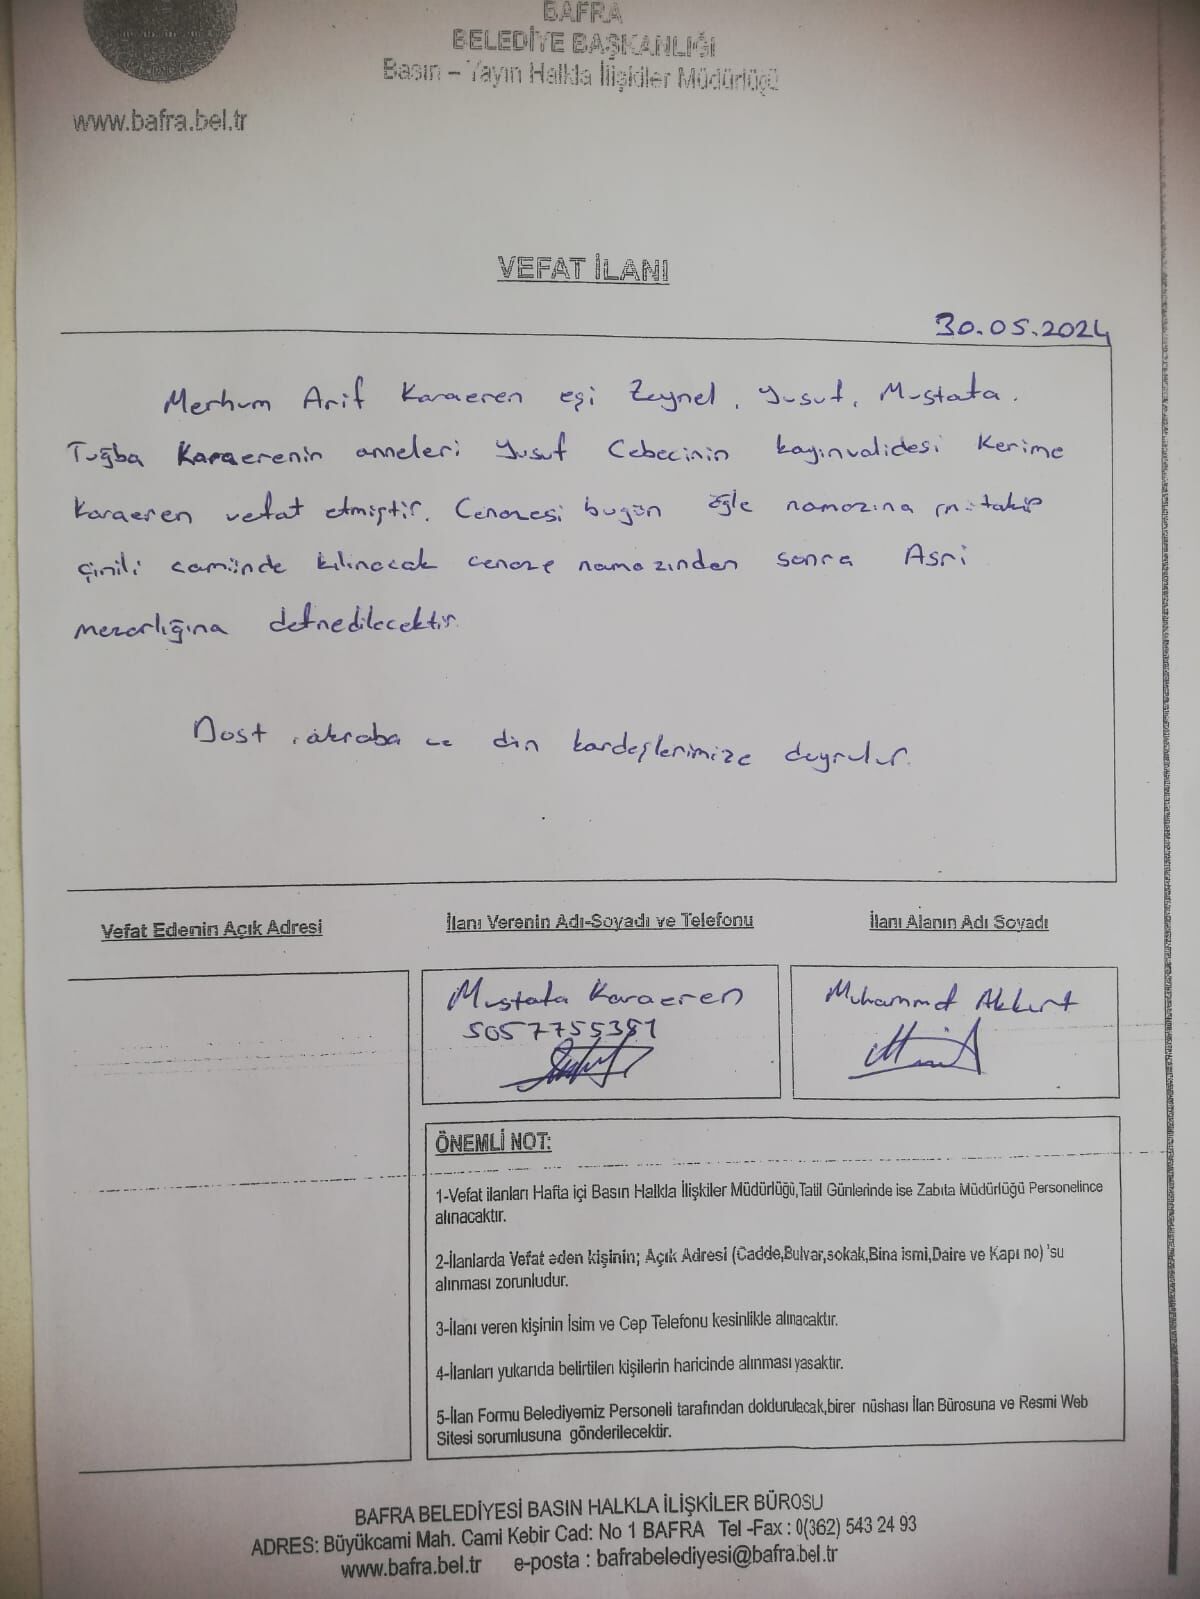 BAFRA
BELEDİYE BAŞKANLIĞI
Basın – Yayın Halkla İlişkiler Müdürlüğü
www.bafra.bel.tr
VEFAT İLANI
30.05.2024
Merhum Arif Karaeren eşi Zeynel, Yusuf, Mustafa.
Tuğba Karaerenin anneleri Yusuf Cebecinin kayınvalidesi Kerime
Karaeren vefat etmiştir. Cenazesi bugün öğle namazına mütakip
çinili camiinde kılınacak cenaze namazından sonra Asri
mezarlığına defnedilecektir.
Dost, akraba ve din kardeşlerimize duyrulur.
Vefat Edenin Açık Adresi
İlanı Verenin Adı-Soyadı ve Telefonu
İlanı Alanın Adı Soyadı
Mustafa Karaeren
5057755381
Muhammet Akkurt
ÖNEMLİ NOT:
1-Vefat ilanları Hafta içi Basın Halkla İlişkiler Müdürlüğü,Tatil Günlerinde ise Zabıta Müdürlüğü Personelince
alınacaktır.
2-İlanlarda Vefat eden kişinin; Açık Adresi (Cadde,Bulvar,sokak,Bina ismi,Daire ve Kapı no) 'su
alınması zorunludur.
3-İlanı veren kişinin İsim ve Cep Telefonu kesinlikle alınacaktır.
4-İlanları yukarıda belirtilen kişilerin haricinde alınması yasaktır.
5-İlan Formu Belediyemiz Personeli tarafından doldurulacak,birer nüshası İlan Bürosuna ve Resmi Web
Sitesi sorumlusuna gönderilecektir.
BAFRA BELEDİYESİ BASIN HALKLA İLİŞKİLER BÜROSU
ADRES: Büyükcami Mah. Cami Kebir Cad: No 1 BAFRA Tel -Fax : 0(362) 543 24 93
www.bafra.bel.tr e-posta : bafrabelediyesi@bafra.bel.tr